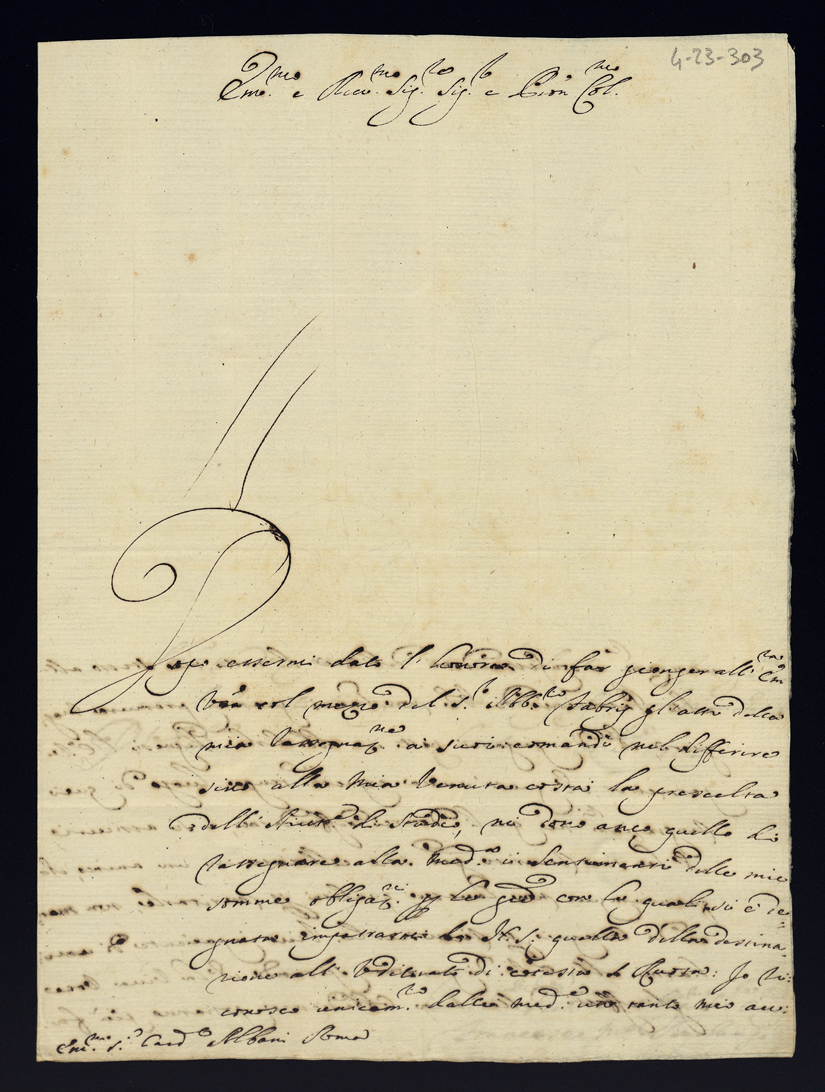 4-23-303
Em.mo e Rev.mo Sig.re Sig.r e Pron Col.mo
Dopo essermi dato l'honore di far giunger all' Em.za
Vra col mezo del S.r Abb.e Fabri gl'atti della
mia rassegnaz.ne ai suoi comandi nel differire
sino alla mia venuta costà la prescelta
dell' di Studio, mi dono anco quello di
rassegnare alla Med.a i sentimenti delle mie
somme obligaz.ni p le con le quali si è de-
gnata impetrarmi da N. S. quella della destina-
zione all' Uditorato di cotesta S. Ruota: Io ri-
conosco unicam.te dalla med.a un tanto mio au-
Em.mo S.r Card.e Albani Roma